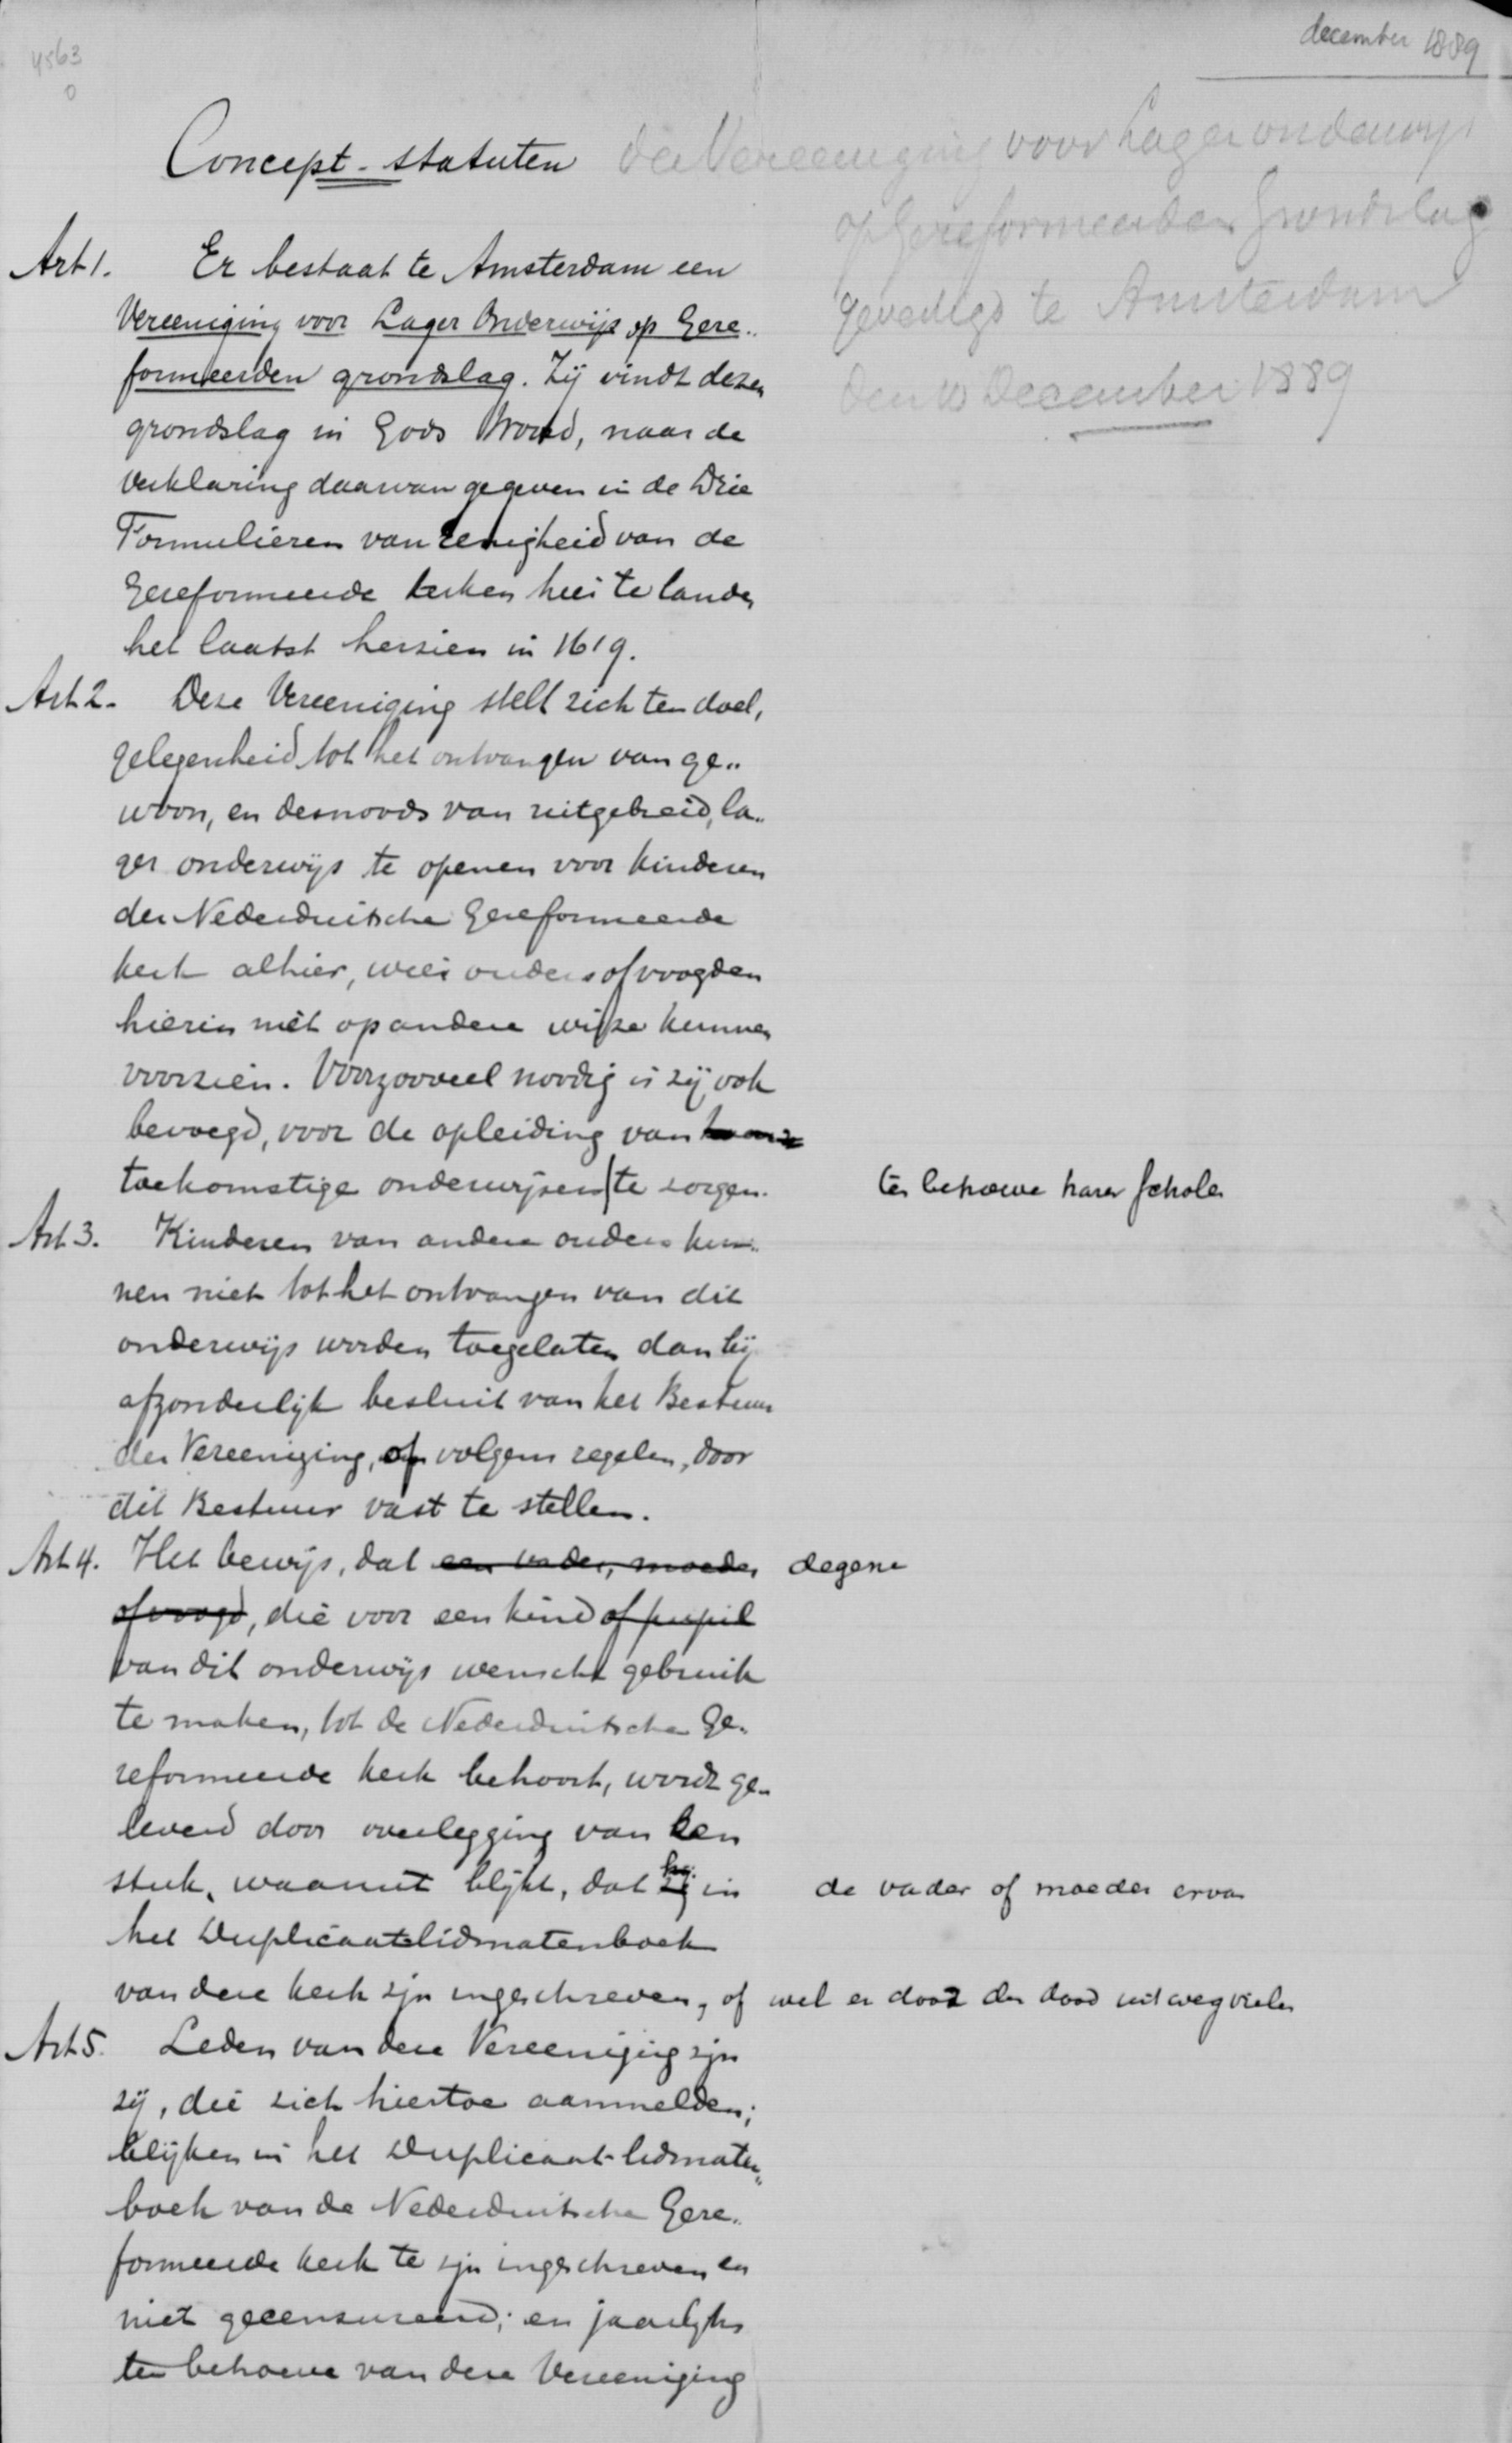 december 1889
4563
0
Concept-statuten der Vereeniging voor Lager onderwijs
op Gereformeerden Grondslag
gevestigd te Amsterdam
den 10 December 1889
Art 1. Er bestaat te Amsterdam een
Vereeniging voor Lager Onderwijs op Gere„
formeerden grondslag. Zij vindt dezen
grondslag in Gods Woord, naar de
verklaring daarvan gegeven in de Drie
Formulieren van Eenigheid van de
Gereformeerde kerken hier te lande,
het laatst herzien in 1619.
Art 2. Deze Vereeniging stelt zich ten doel,
gelegenheid tot het ontvangen van ge„
woon, en desnoods van uitgebreid, la„
ger onderwijs te openen voor kinderen
der Nederduitsche Gereformeerde
kerk alhier, wier ouders of voogden
hierin niet op andere wijze kunnen
voorzien. Voorzooveel noodig is zij ook
bevoegd, voor de opleiding van
toekomstige onderwijzers te zorgen. ten behoeve harer scholen
Art. 3. Kinderen van andere ouders kun„
nen niet tot het ontvangen van dit
onderwijs worden toegelaten dan bij
afzonderlijk besluit van het Bestuur
der Vereeniging, of volgens regelen, door
dit Bestuur vast te stellen.
Art 4. Het bewijs, dat een vader, moeder degene
of voogd, die voor een kind of pupil
van dit onderwijs wenscht gebruik
te maken, tot de Nederduitsche Ge„
reformeerde kerk behoort, wordt ge„
leverd door overlegging van een
stuk, waaruit blijkt, dat hij in de vader of moeder ervan
het Duplicaatlidmatenboek
van deze kerk zijn ingeschreven, of wel er door den dood uit wegvielen
Art 5. Leden van deze Vereeniging zijn
zij, die zich hiertoe aanmelden;
blijken in het Duplicaat-lidmaten„
boek van de Nederduitsche Gere„
formeerde kerk te zijn ingeschreven en
niet gecensureerd; en jaarlijks
ten behoeve van deze Vereeniging